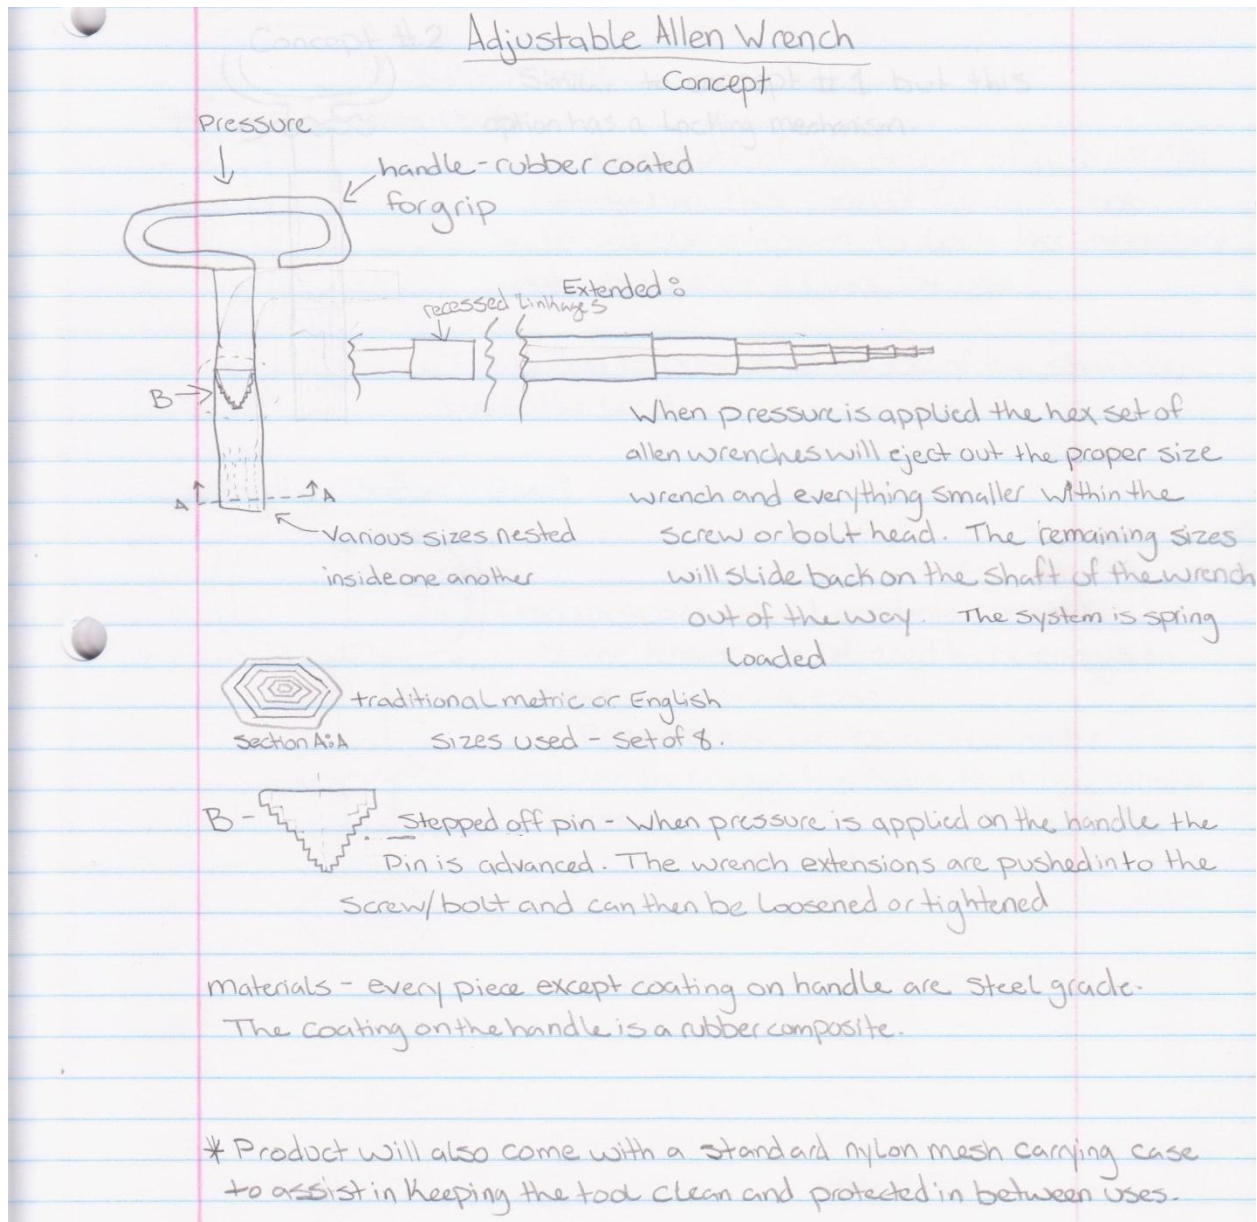 Adjustable Allen Wrench
Concept
Concept #2
Similar to concept #1 but this
option has a Locking mechanism.
Pressure
handle - rubber coated
for grip
Extended:
recessed Linkages
B
A
A
Various sizes nested
inside one another
When pressure is applied the hex set of
allen wrenches will eject out the proper size
wrench and everything smaller within the
screw or bolt head. The remaining sizes
will slide back on the shaft of the wrench
out of the way. The system is spring
Loaded
traditional metric or English
Sizes used - set of 8.
Section A:A
B - Stepped off pin - When pressure is applied on the handle the
Pin is advanced. The wrench extensions are pushed into the
Screw/bolt and can then be Loosened or tightened
materials - every piece except coating on handle are steel grade.
The coating on the handle is a rubber composite.
* Product will also come with a standard nylon mesh carrying case
to assist in keeping the tool clean and protected in between uses.